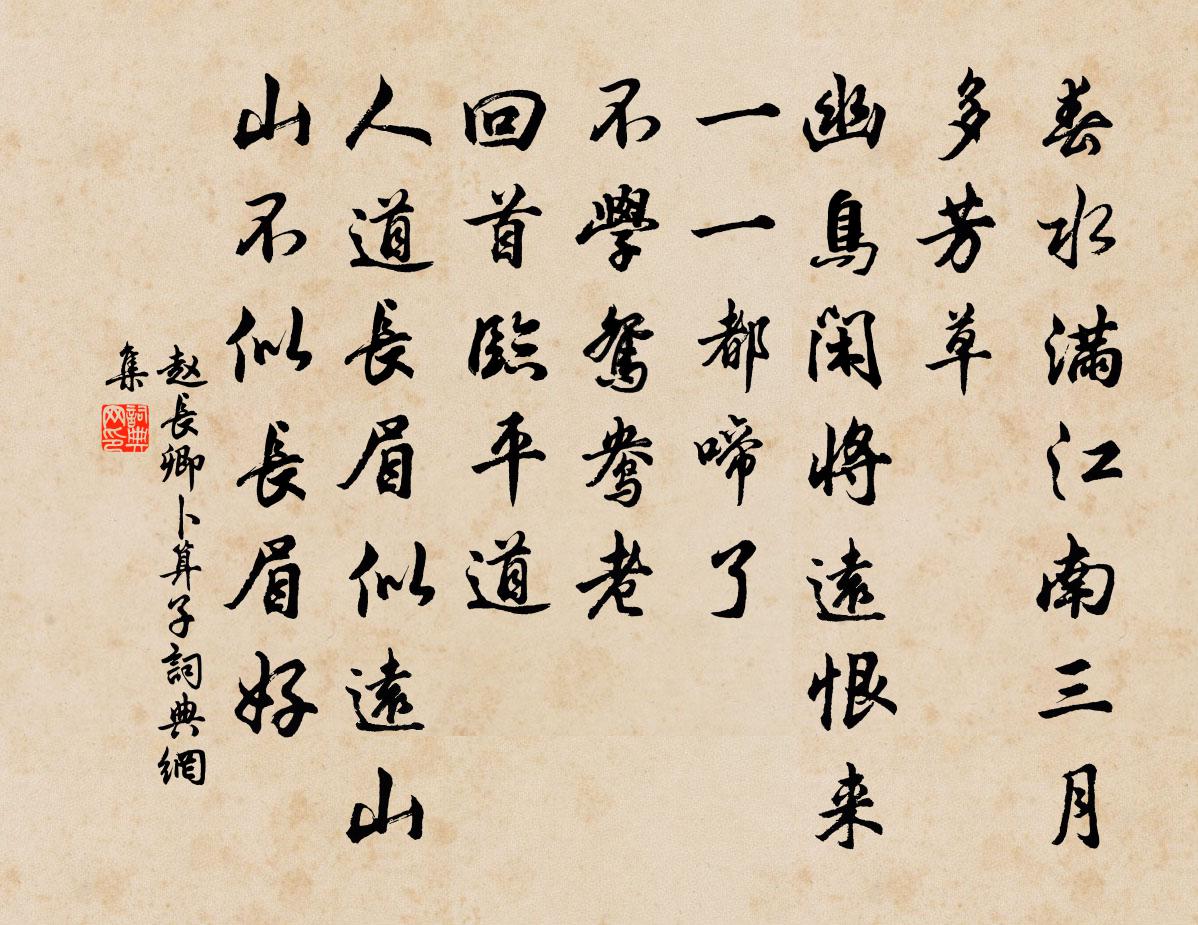 春水满江南三月
多芳草
幽鳥闲將遠恨来
一一都啼了
不學鴛鴦老
回首臨平道
人道長眉似遠山
山不似長眉好
赵長卿卜算子詞典網
集
詞典
网印